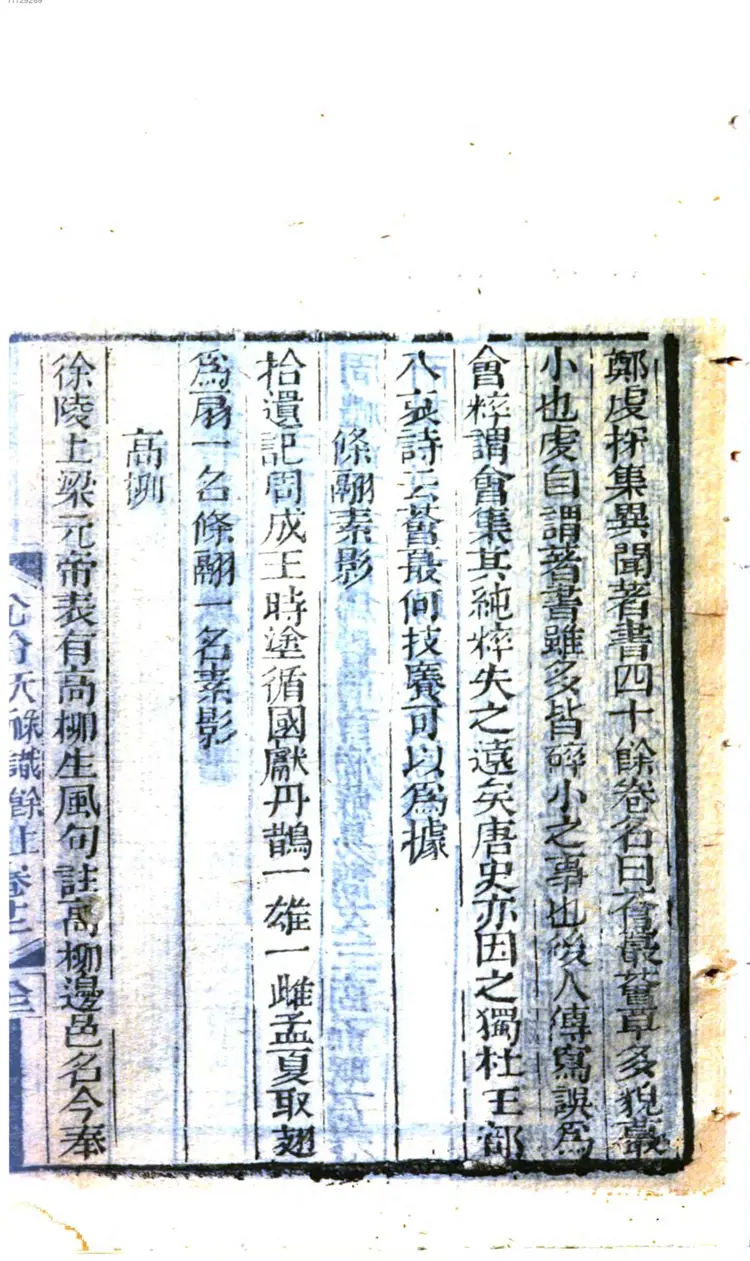 鄭虔採集異聞著書四十餘卷名曰薈蕞薈草多貌蕞
小也虔自謂著書雖多皆碎小之事也後人傳寫誤為
會稡謂會集其純粹失之遠矣唐史亦因之獨杜工部
八哀詩云薈蕞何技癢可以為據
條翮素影
拾遺記周成王時塗循國獻丹鵲一雄一雌孟夏取翅
為扇一名條翮一名素影
高栁
徐陵上梁元帝表有高柳生風句註高柳邊邑名今奉
識餘 卷十二